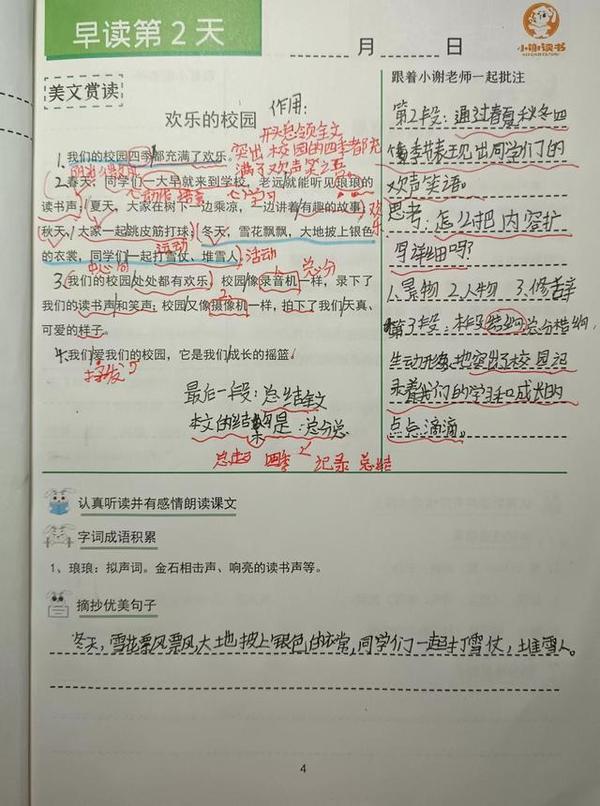 早读第2天
月 日
小谢读书
美文赏读
欢乐的校园
作用:
开头总领全文
突出校园的四季都充
满了欢声笑语
1.我们的校园四季都充满了欢乐。
2.春天,同学们一大早就来到学校,老远就能听见琅琅的
读书声;夏天,大家在树下一边乘凉,一边讲着有趣的故事;
秋天,大家一起跳皮筋打球;冬天,雪花飘飘,大地披上银色
的衣裳,同学们一起打雪仗、堆雪人。活动
学习
欢乐
运动
中心句
总分
3.我们的校园处处都有欢乐。校园像录音机一样,录下了
我们的读书声和笑声;校园又像摄像机一样,拍下了我们天真、
可爱的样子。
4.我们爱我们的校园,它是我们成长的摇篮。
抒发
最后一段:总结全文
本文的结构是:总分总
总起 四季 记录 总结
跟着小谢老师一起批注
第2段:通过春夏秋冬四
季节表现出同学们的
欢声笑语。
思考:怎么把内容扩
写详细吗?
1.景物 2.人物 3.修辞
第3段:本段结构总分结构,
生动形象地突出了校园记
录着我们的学习和成长的
点点滴滴。
认真听读并有感情朗读课文
字词成语积累
1、琅琅:拟声词。金石相击声、响亮的读书声等。
摘抄优美句子
冬天,雪花飘飘,大地披上银色的衣常,同学们一起打雪仗,堆雪人。
4